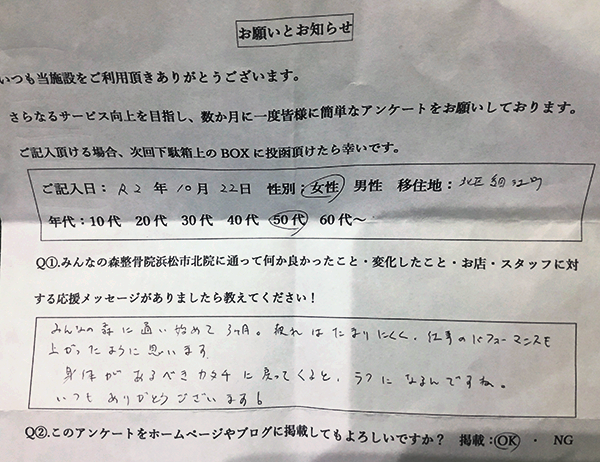 お願いとお知らせ
いつも当施設をご利用頂きありがとうございます。
さらなるサービス向上を目指し、数か月に一度皆様に簡単なアンケートをお願いしております。
ご記入頂ける場合、次回下駄箱上のBOXに投函頂けたら幸いです。
ご記入日：R2 年 10月 22日 性別：女性 男性 移住地：北区細江町
年代：10代 20代 30代 40代 50代 60代～
Q①.みんなの森整骨院浜松市北院に通って何か良かったこと・変化したこと・お店・スタッフに対
する応援メッセージがありましたら教えてください！
みんなの森に通い始めて3ヶ月。疲れはたまりにくく、仕事のパフォーマンスも
上がったように思います
身体があるべきカタチに戻ってくると、ラクになるんですね。
いつもありがとうございます！
Q②.このアンケートをホームページやブログに掲載してもよろしいですか？ 掲載：OK ・ NG